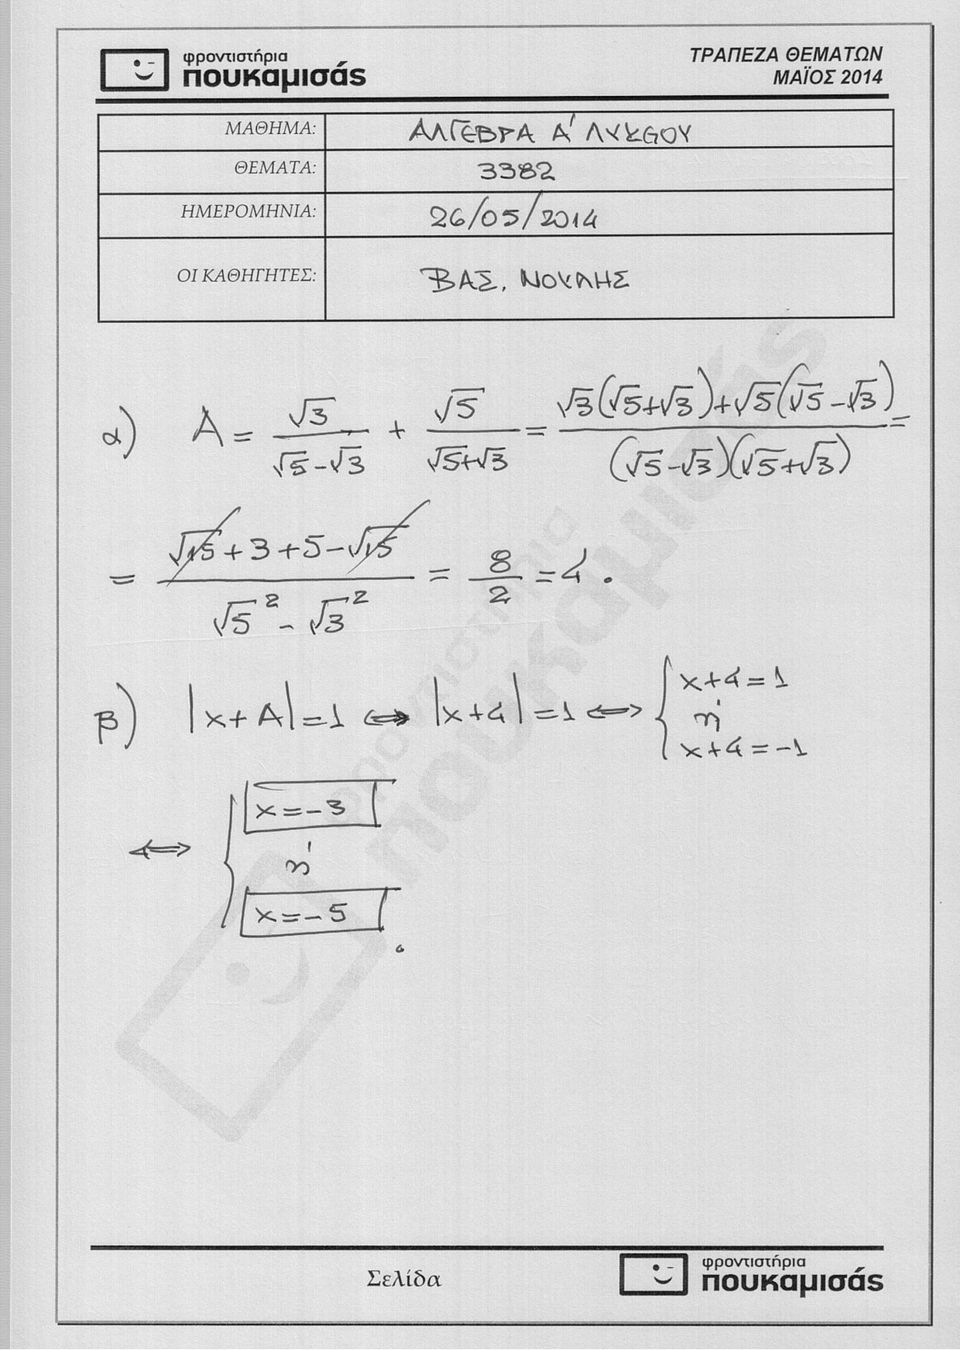 φροντιστήρια
πουκαμισάς
ΤΡΑΠΕΖΑ ΘΕΜΑΤΩΝ
ΜΑΪΟΣ 2014
ΜΑΘΗΜΑ: ΑΛΓΕΒΡΑ Α' ΛΥΚΕΙΟΥ
ΘΕΜΑΤΑ: 3382
ΗΜΕΡΟΜΗΝΙΑ: 26/05/2014
ΟΙ ΚΑΘΗΓΗΤΕΣ: ΒΑΣ. ΝΟΥΛΗΣ
α) A = √3/(√5-√3) + √5/(√5+√3) = (√3(√5+√3)+√5(√5-√3))/((√5-√3)(√5+√3)) =
= (√15+3+5-√15)/(√5²-√3²) = 8/2 = 4.
β) |x+A|=1 ⇔ |x+4|=1 ⇔ { x+4=1
ή
x+4=-1
⇔ { x=-3
ή
x=-5.
φροντιστήρια
πουκαμισάς
Σελίδα
φροντιστήρια
πουκαμισάς